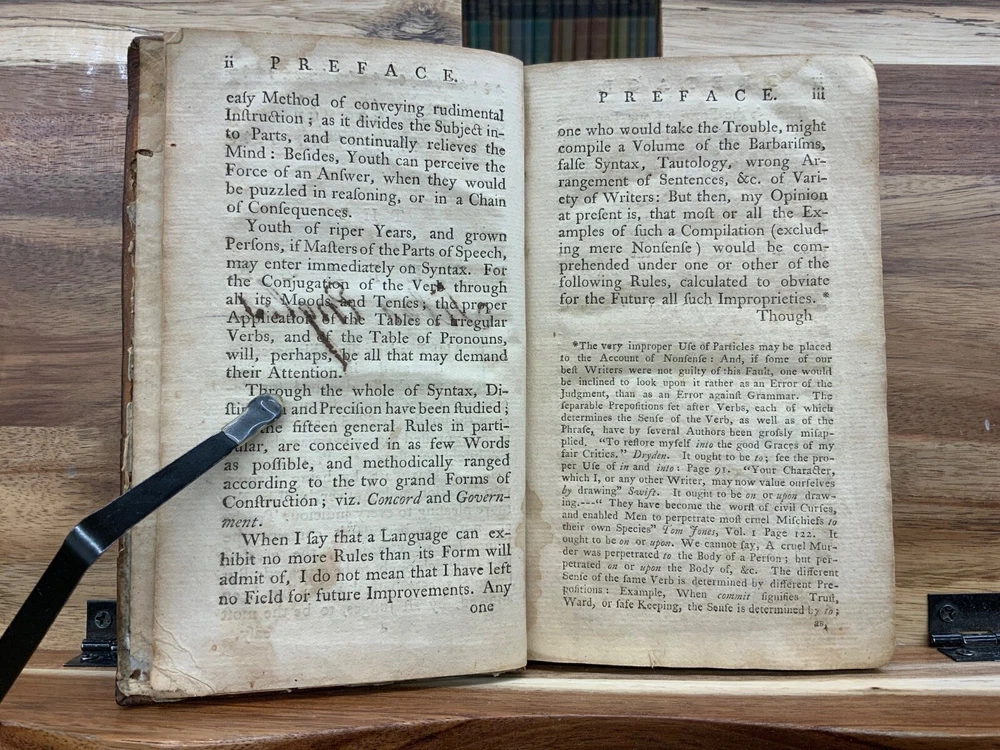 ii PREFACE.
eaſy Method of conveying rudimental
Inſtruction ; as it divides the Subject in-
to Parts, and continually relieves the
Mind : Beſides, Youth can perceive the
Force of an Anſwer, when they would
be puzzled in reaſoning, or in a Chain
of Conſequences.
Youth of riper Years, and grown
Perſons, if Maſters of the Parts of Speech,
may enter immediately on Syntax. For
the Conjugation of the Verb through
all its Moods and Tenſes ; the proper
Application of the Tables of Irregular
Verbs, and of the Table of Pronouns,
will, perhaps, be all that may demand
their Attention.
Through the whole of Syntax, Di-
and Preciſion have been ſtudied ;
fifteen general Rules in parti-
cular, are conceived in as few Words
as poſſible, and methodically ranged
according to the two grand Forms of
Conſtruction ; viz. Concord and Govern-
ment.
When I ſay that a Language can ex-
hibit no more Rules than its Form will
admit of, I do not mean that I have left
no Field for future Improvements. Any
one
PREFACE. iii
one who would take the Trouble, might
compile a Volume of the Barbariſms,
falſe Syntax, Tautology, wrong Ar-
rangement of Sentences, &c. of Vari-
ety of Writers: But then, my Opinion
at preſent is, that moſt or all the Ex-
amples of ſuch a Compilation (exclud-
ing mere Nonſenſe) would be com-
prehended under one or other of the
following Rules, calculated to obviate
for the Future all ſuch Improprieties. *
Though
*The very improper Uſe of Particles may be placed
to the Account of Nonſenſe : And, if ſome of our
beſt Writers were not guilty of this Fault, one would
be inclined to look upon it rather as an Error of the
Judgment, than as an Error againſt Grammar. The
ſeparable Prepoſitions ſet after Verbs, each of which
determines the Senſe of the Verb, as well as of the
Phraſe, have by ſeveral Authors been groſsly miſap-
plied. "To reſtore myſelf into the good Graces of my
fair Critics." Dryden. It ought to be to; ſee the pro-
per Uſe of in and into: Page 91. "Your Character,
which I, or any other Writer, may now value ourſelves
by drawing" Swift. It ought to be on or upon draw-
ing.---" They have become the worſt of civil Curſes,
and enabled Men to perpetrate moſt cruel Miſchiefs to
their own Species" Tom Jones, Vol. 1 Page 122. It
ought to be on or upon. We cannot ſay, A cruel Mur-
der was perpetrated to the Body of a Perſon ; but per-
petrated on or upon the Body of, &c. The different
Senſe of the ſame Verb is determined by different Pre-
poſitions : Example, When commit ſignifies Truſt,
Ward, or ſafe Keeping, the Senſe is determined by to ;
as,